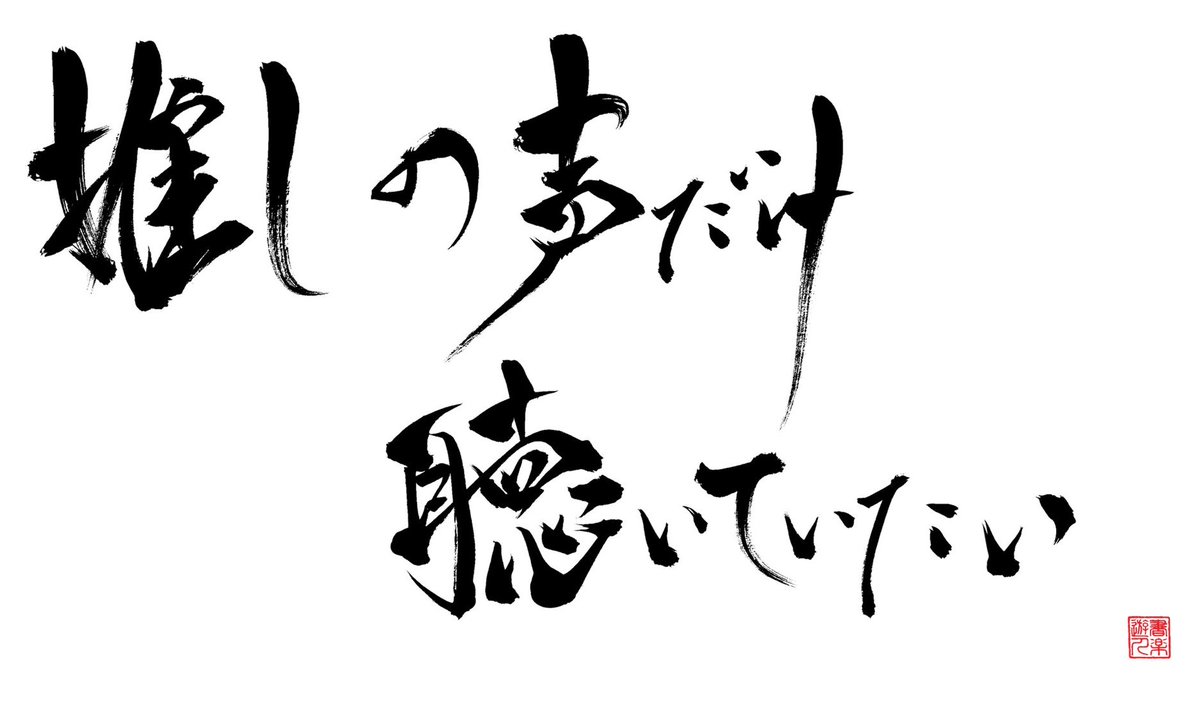 推しの声だけ
聴いていたい
書楽
遊人